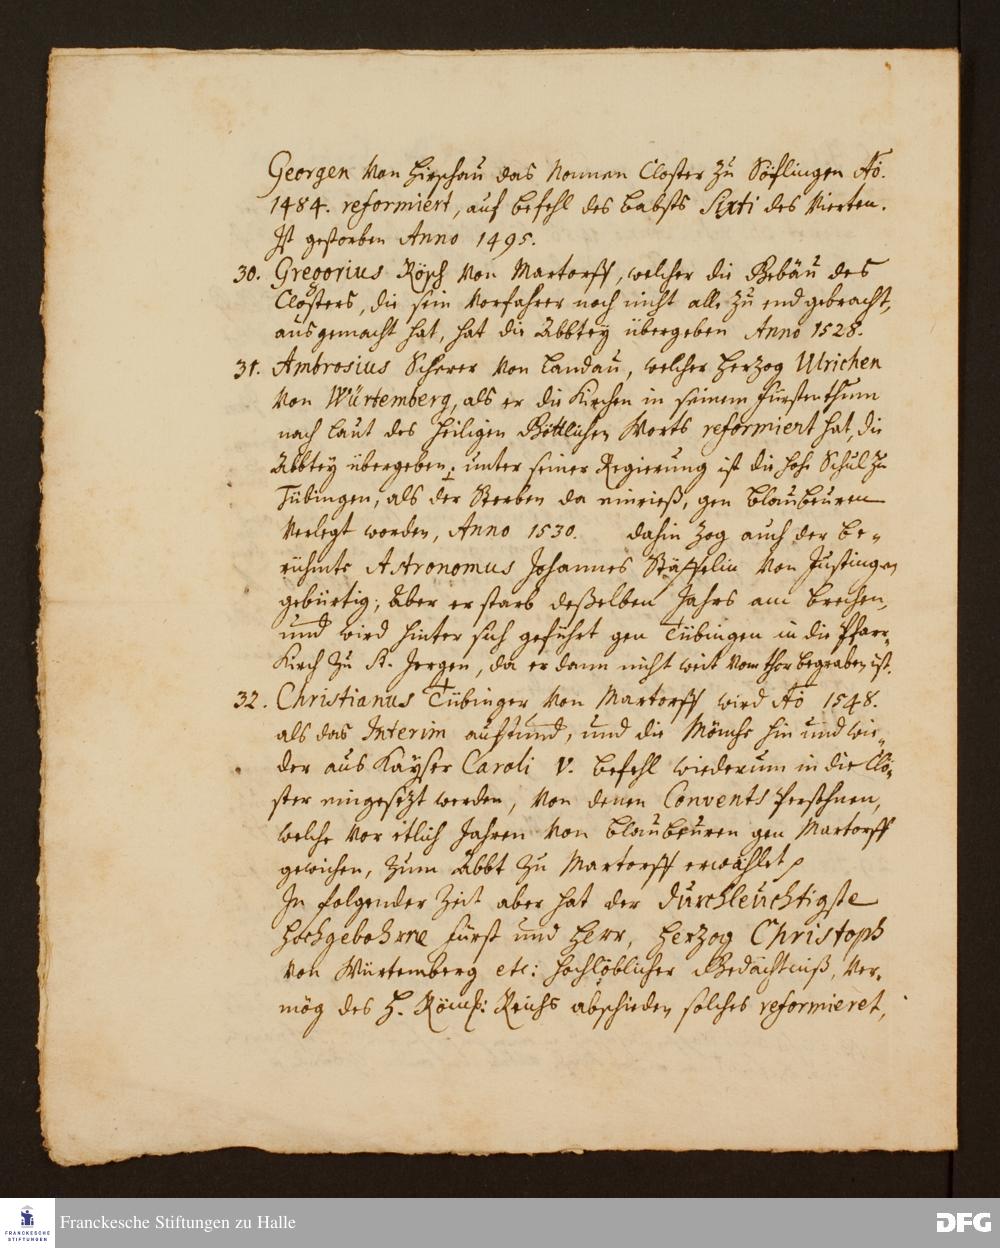 Georgen von Hirschau das Nonnen Closter zu Söflingen Aõ.
1484. reformiert, auf befehl des Babsts Sixti des Vierten.
Ist gestorben Anno 1495.
30. Gregorius Rösch von Martorff, welcher die Gebäu des
Closters, die sein Vorfahrer noch nicht alle zu end gebracht,
ausgemacht hat, hat die Abbtey übergeben Anno 1528.
31. Ambrosius Scherer von Landau, welcher Herzog Ulrichen
von Würtemberg, als er die Kirchen in seinem Fürstenthum
nach laut des Heiligen Göttlichen Worts reformiert hat, die
Abbtey übergeben; unter seiner Regierung ist die hohe Schul zu
Tübingen, als der Sterben da einrieß, gen Blaubeuren
verlegt worden, Anno 1530. dahin zog auch der be-
rühmte Astronomus Johannes Stöffelin von Justingen
gebürtig; Aber er starb deßelben Jahrs am brechen,
und wird hinter sich geführt gen Tübingen in die Pfarr-
Kirch zu St. Jergen, da er dann nicht weit vom thor begraben ist.
32. Christianus Tübinger von Martorff wird Aõ 1548.
als das Interim aufstund, und die Mönche hin und wie-
der aus Kayser Caroli V. befehl wiederum in die Clö-
ster eingesezt werden, von denen Convents Persohnen,
welche vor etlich Jahren von Blaubeuren gen Martorff
gewichen, zum Abbt zu Martorff erwählet.
In folgender Zeit aber hat der Durchleuchtigste
Hochgebohrne Fürst und Herr, Herzog Christoph
von Würtemberg etc: hochlöblicher Gedächtniß, ver-
mög des H. Römis: Reichs abschieden solches reformieret,
FRANCKESCHE
STIFTUNGEN
Franckesche Stiftungen zu Halle
DFG